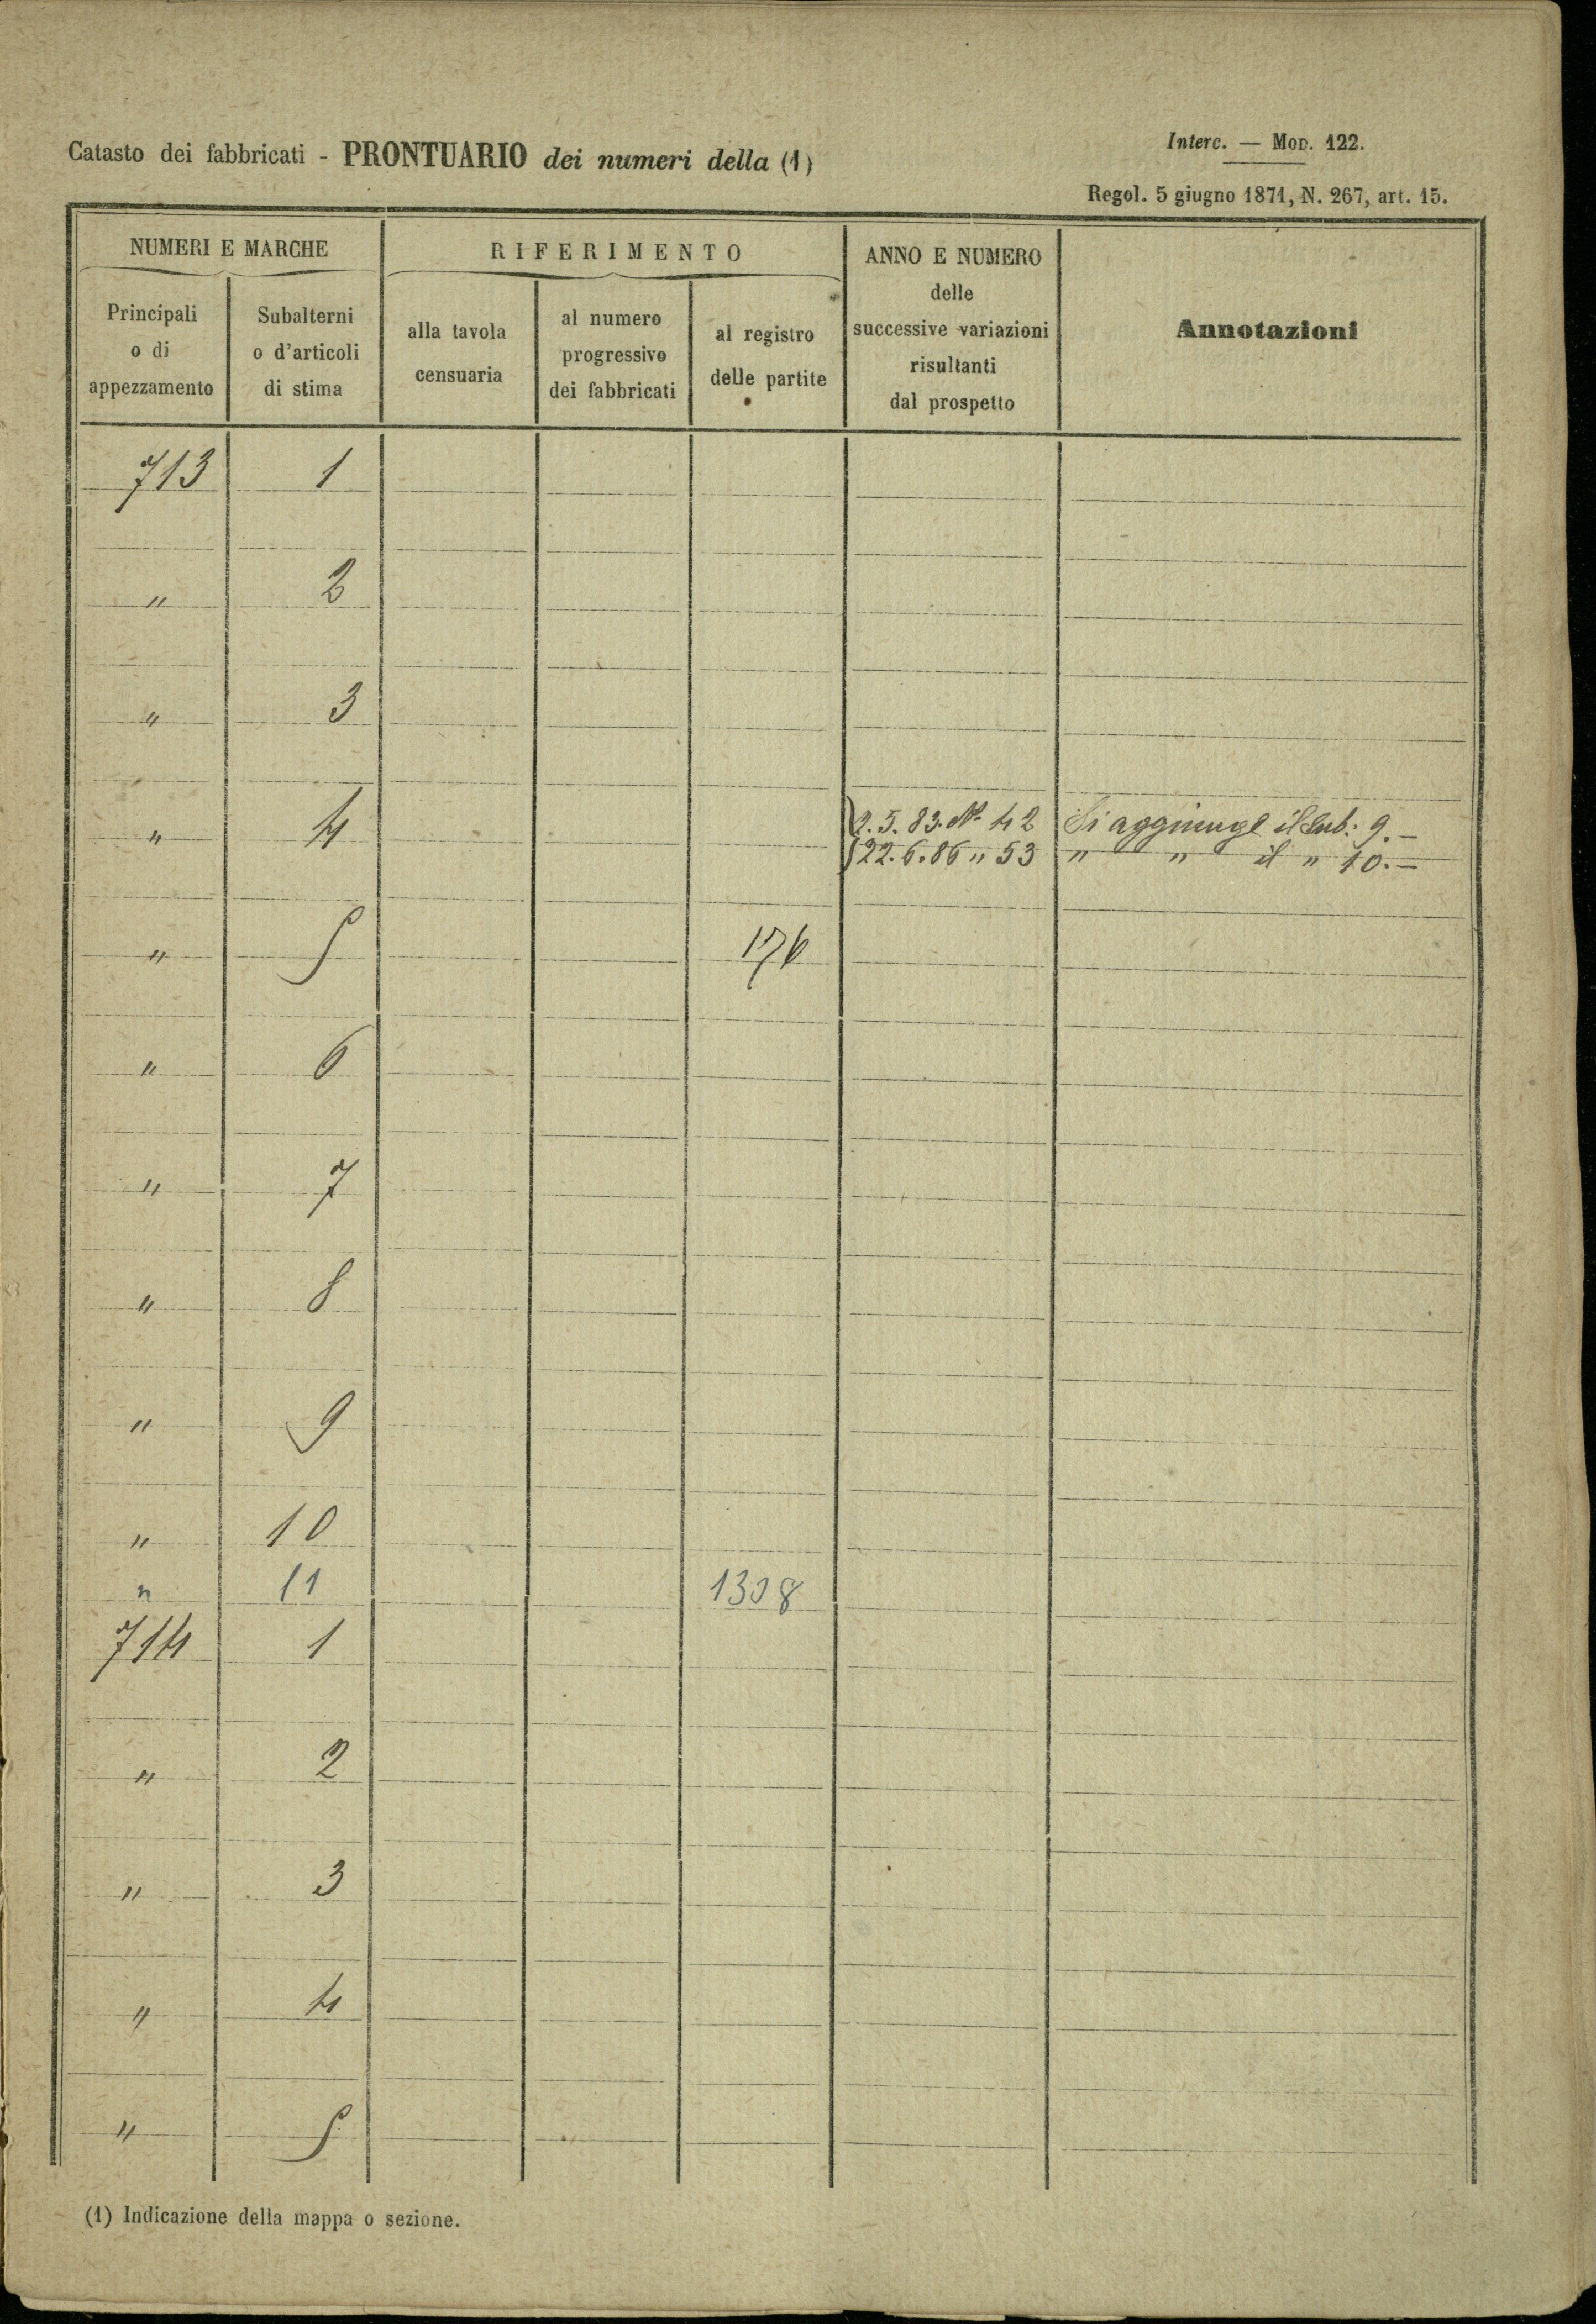 Catasto dei fabbricati - PRONTUARIO dei numeri della (1)
Interc. — Mod. 122.
Regol. 5 giugno 1871, N. 267, art. 15.
NUMERI E MARCHE
Principali o di appezzamento
Subalterni o d'articoli di stima
RIFERIMENTO
alla tavola censuaria
al numero progressivo dei fabbricati
al registro delle partite
ANNO E NUMERO delle successive variazioni risultanti dal prospetto
Annotazioni
713 1
" 2
" 3
" 4 2.5.83. No. 42 Si aggiunge il Sub: 9.—
22.6.86 " 53 " " il " 10.—
" 5 176
" 6
" 7
" 8
" 9
" 10
" 11 1308
714 1
" 2
" 3
" 4
" 5
(1) Indicazione della mappa o sezione.